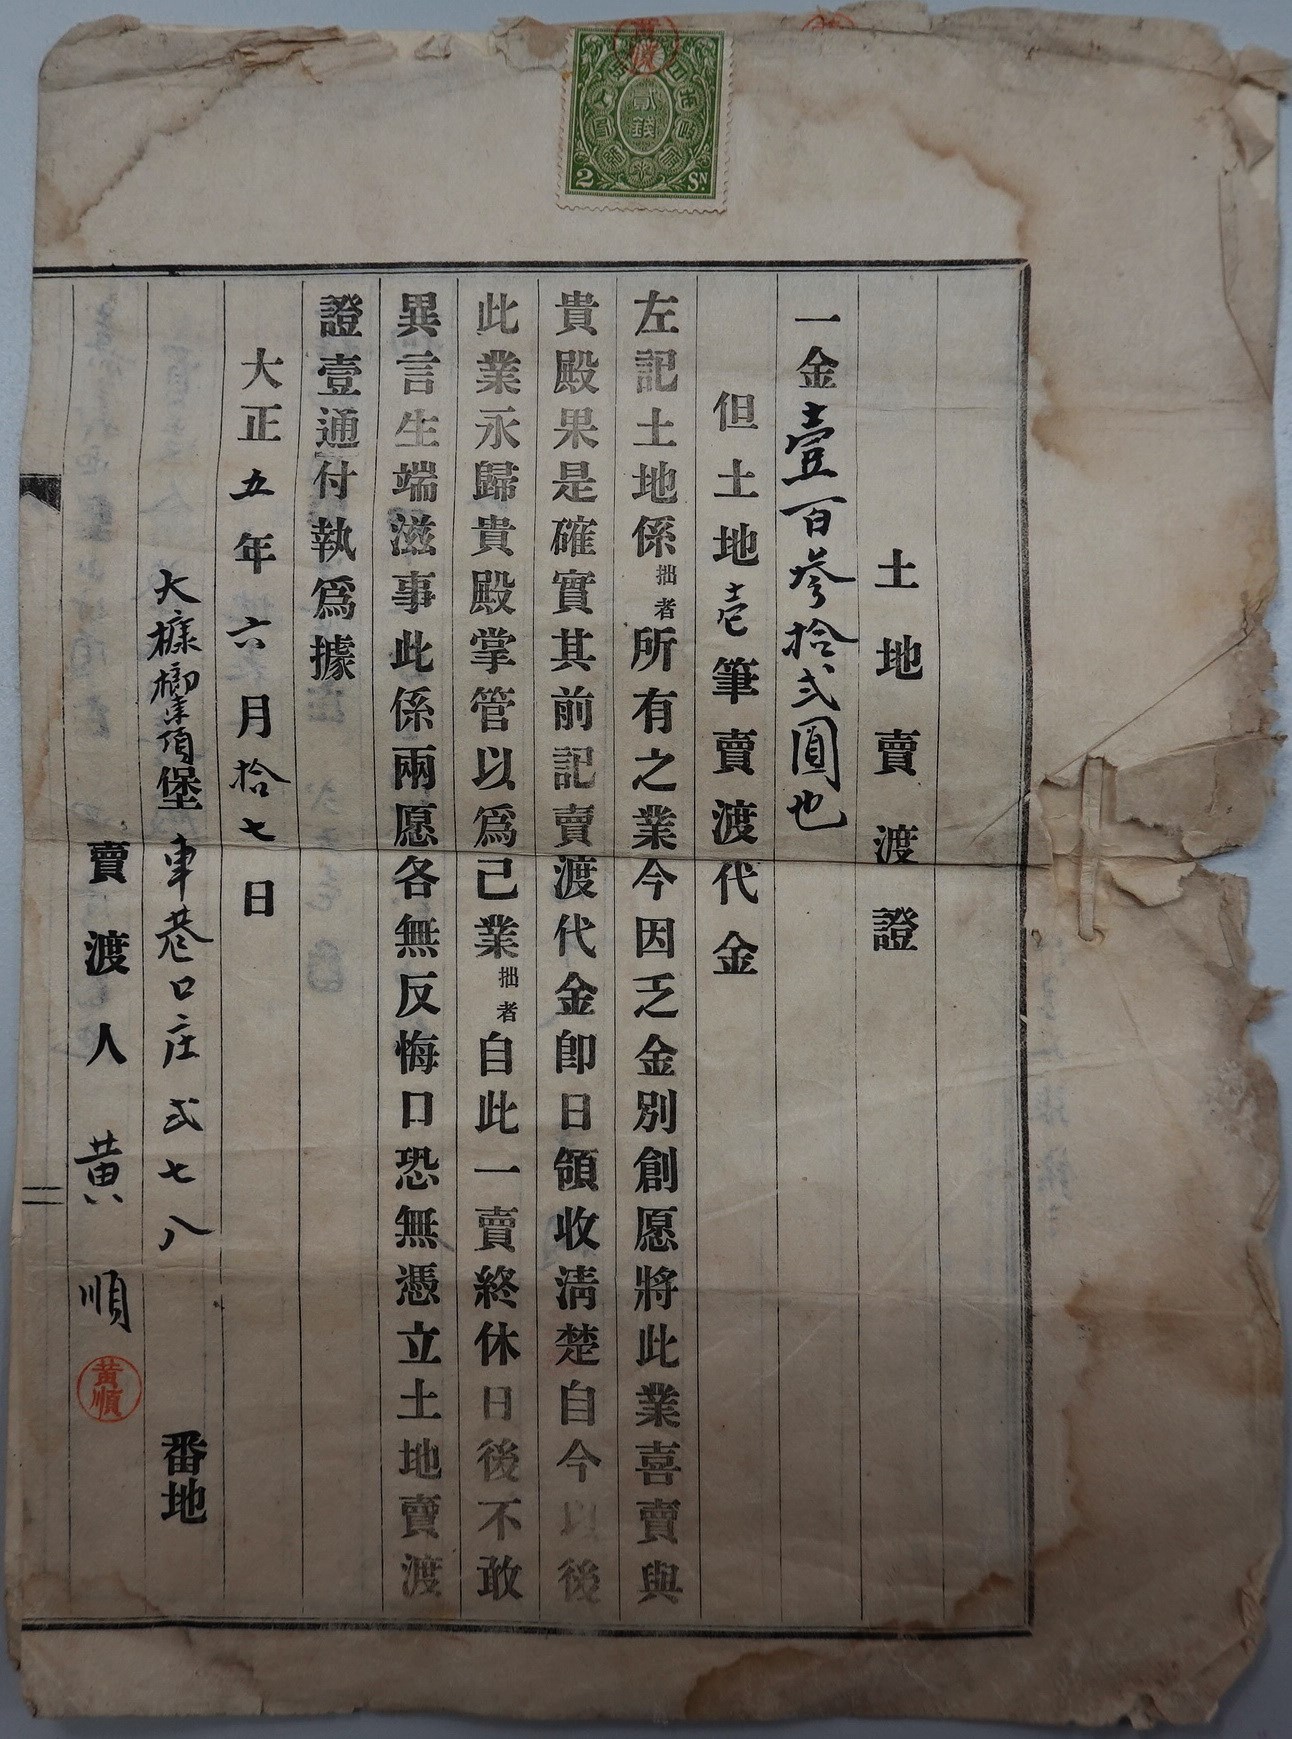 土地賣渡證
一金壹百參拾弍圓也
但土地壱筆賣渡代金
左記土地係拙者所有之業今因乏金別創愿將此業喜賣與
貴殿果是確實其前記賣渡代金卽日領收淸楚自今以後
此業永歸貴殿掌管以爲己業拙者自此一賣終休日後不敢
異言生端滋事此係兩愿各無反悔口恐無憑立土地賣渡
證壹通付執爲據
大正五年六月拾七日
大槺榔東頂堡車巷口庄弍七八番地
賣渡人黃順
黃順
貳錢
2 SN
黃順